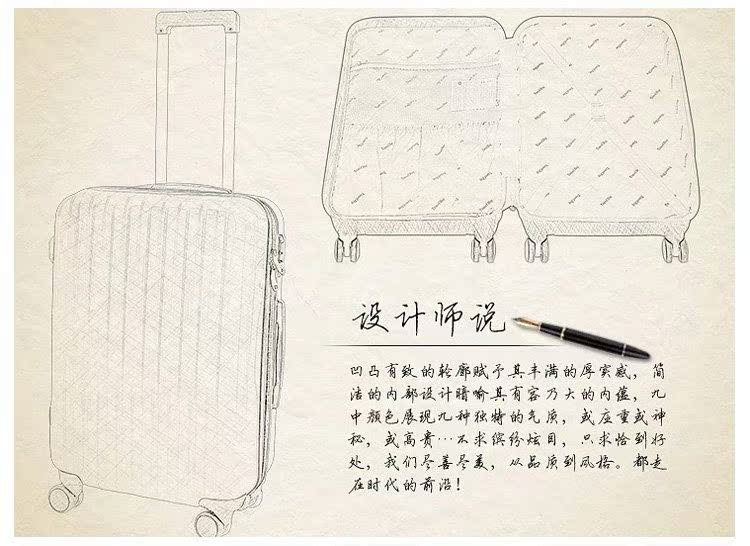 设计师说
凹凸有致的轮廓赋予其丰满的厚实感，简
洁的内部设计暗喻其有容乃大的内蕴，九
中颜色展现九种独特的气质，或庄重或神
秘，或高贵…不求缤纷炫目，只求恰到好
处，我们尽善尽美，从品质到风格。都走
在时代的前沿！